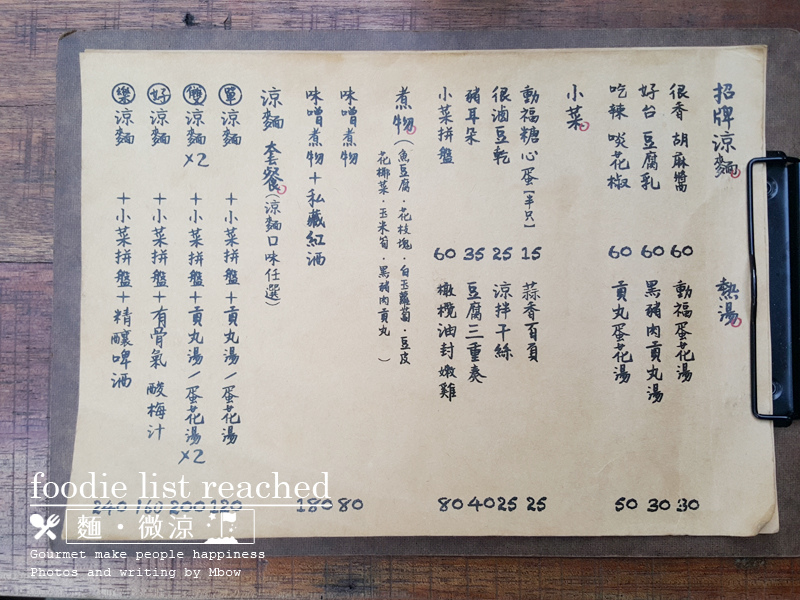 招牌涼麵
很香 胡麻醬 60
好台 豆腐乳 60
吃辣 啖花椒 60
熱湯
動福蛋花湯 30
黑豬肉貢丸湯 30
貢丸蛋花湯 50
小菜
動福糖心蛋[半只] 15
很滷豆乾 25
豬耳朵 35
小菜拼盤 60
蒜香百頁 25
涼拌干絲 25
豆腐三重奏 40
橄欖油封嫩雞 80
煮物(魚豆腐·花枝塊·白玉蘿蔔·豆皮
花椰菜·玉米筍·黑豬肉貢丸)
味噌煮物 80
味噌煮物+私藏紅酒 180
涼麵 套餐(涼麵口味任選)
單 涼麵 +小菜拼盤+貢丸湯/蛋花湯 120
雙 涼麵x2 +小菜拼盤+貢丸湯/蛋花湯x2 200
好 涼麵 +小菜拼盤+有骨氣 酸梅汁 160
樂 涼麵 +小菜拼盤+精釀啤酒 240
foodie list reached
麵·微涼
Gourmet make people happiness
Photos and writing by Mbow